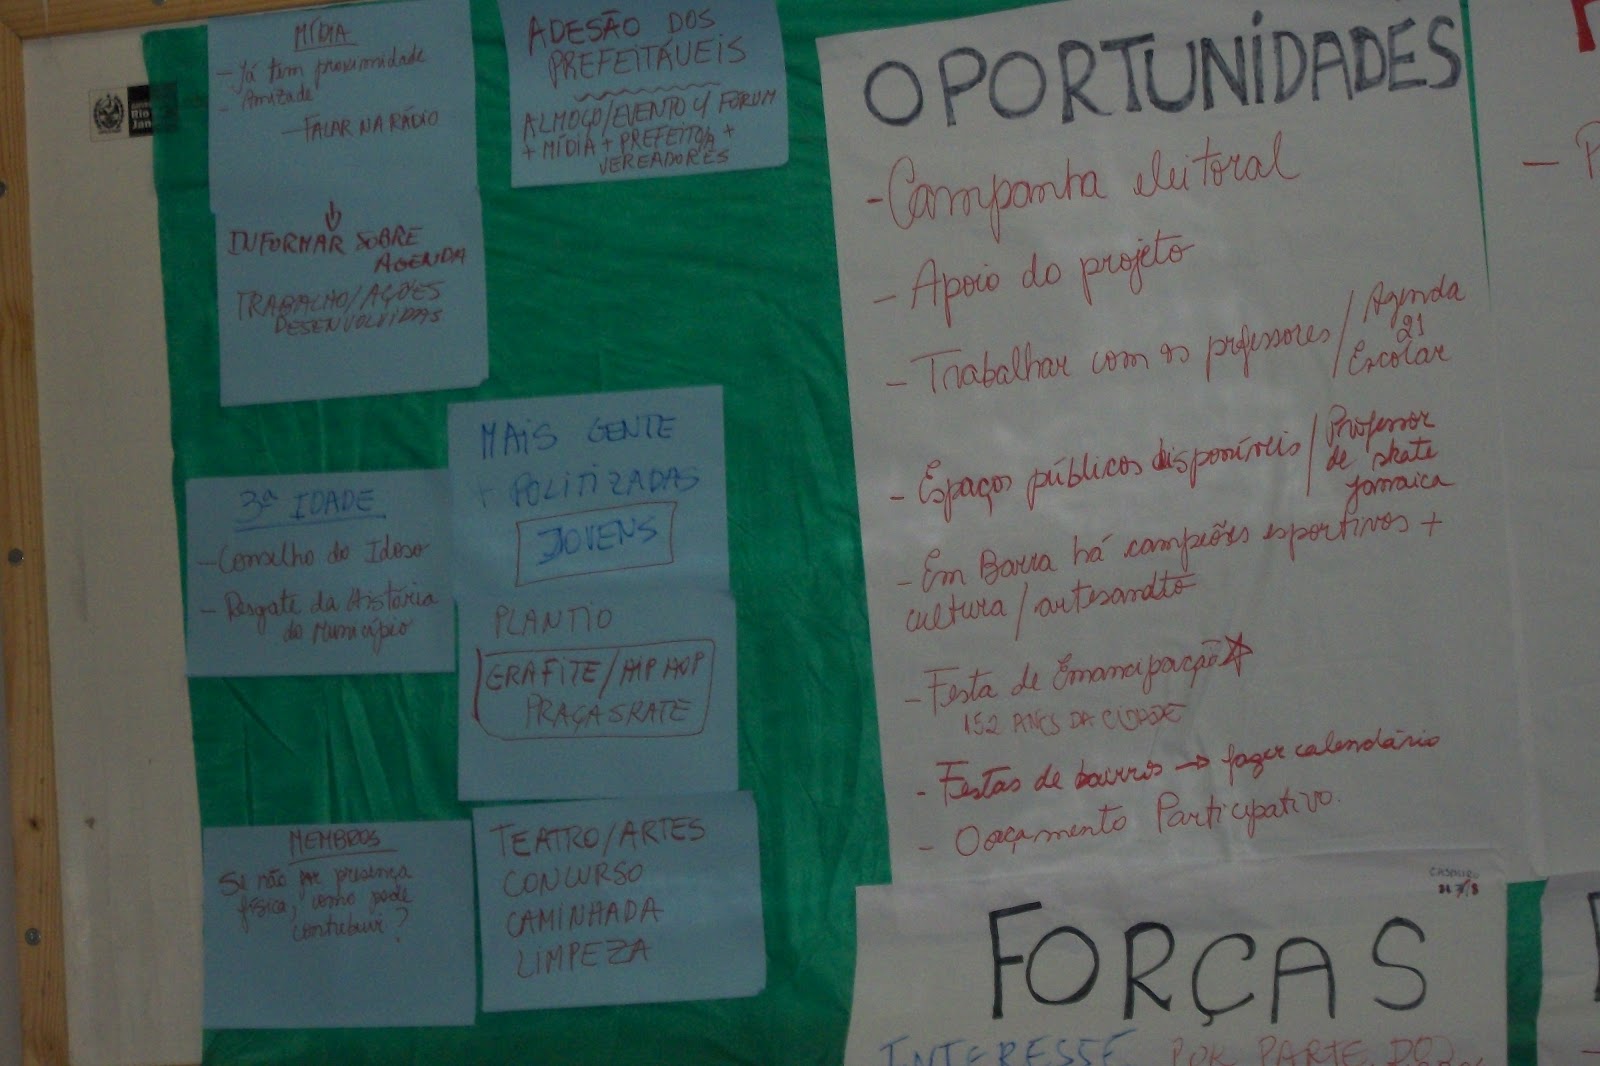 MÍDIA
- Já tem proximidade
- Amizade
- FALAR NA RÁDIO
INFORMAR SOBRE
AGENDA
TRABALHO/AÇÕES
DESENVOLVIDAS
ADESÃO DOS
PREFEITÁVEIS
ALMOÇO/EVENTO C/ FORUM
+ MÍDIA + PREFEITO/A +
VEREADORES
3ª IDADE
- Conselho do Idoso
- Resgate da História
do Município
MAIS GENTE
+ POLITIZADAS
JOVENS
PLANTIO
GRAFITE/HIP HOP
PRAÇASKATE
MEMBROS
Se não presença
física, como pode
contribuir?
TEATRO/ARTES
CONCURSO
CAMINHADA
LIMPEZA
Rio
Jan
OPORTUNIDADES
- Campanha eleitoral
- Apoio do projeto
- Trabalhar com os professores / Agenda
21
Escolar
- Espaços públicos disponíveis / Professor
de skate
Jamaica
- Em Barra há campeões esportivos +
cultura/
- Festa de Emancipação
152 ANOS DA CIDADE
- Festas de bairros → fazer calendário
- Orçamento Participativo.
CASIMIRO
FORÇAS
INTERESSE POR PARTE DO